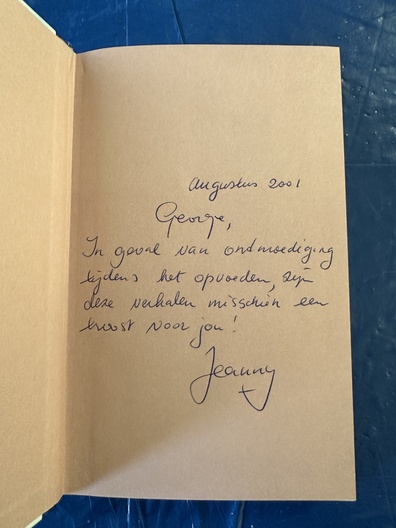 Augustus 2001
George,
In geval van ontmoediging
tijdens het opvoeden, zijn
deze verhalen misschien een
troost voor jou!
Jeanny
x